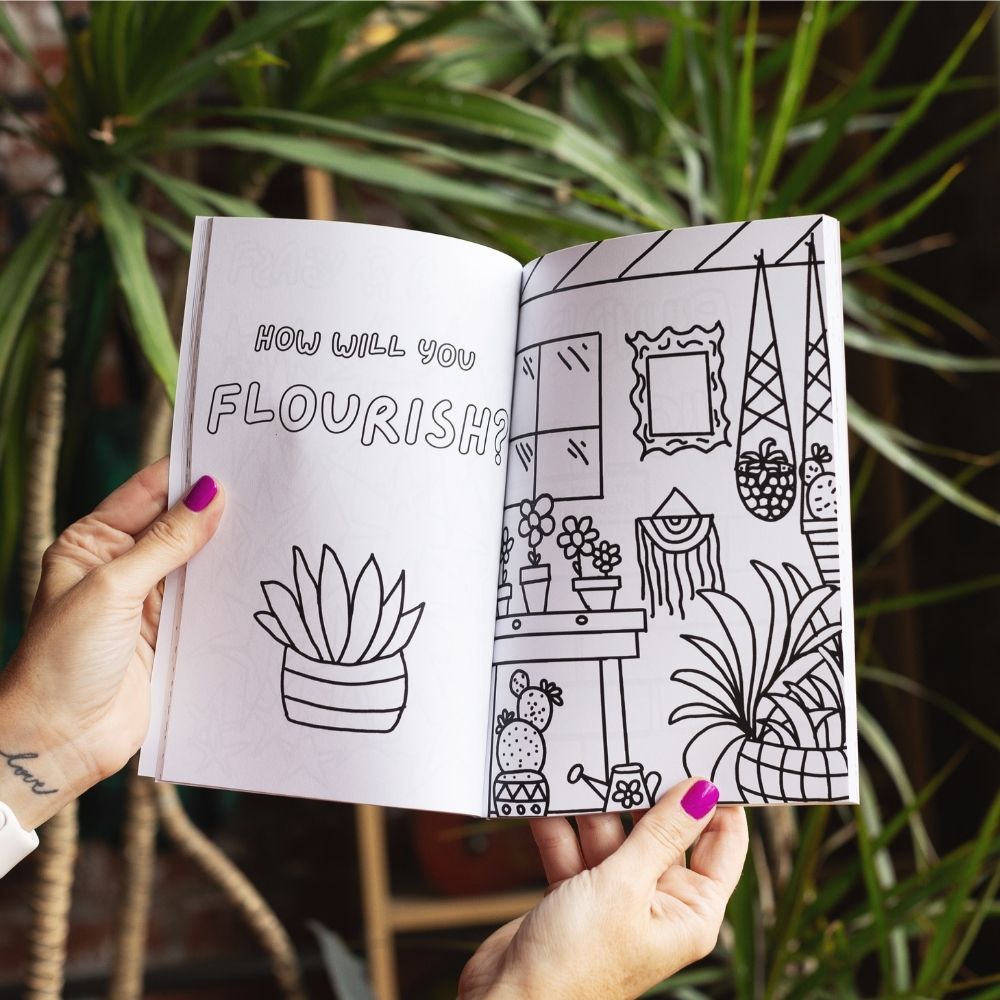 HOW WILL YOU
FLOURISH?
love